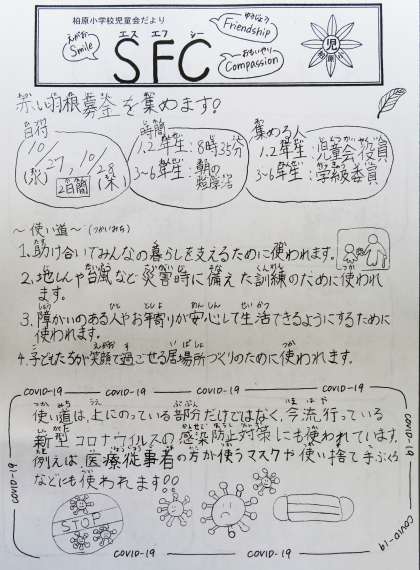 柏原小学校児童会だより
えがお
Smile
エス エフ シー
SFC
ゆうじょう
Friendship
おもいやり
Compassion
児
赤い羽根募金を集めます!
日時
10/27(水)、10/28(木)
2日間
時間
1.2年生:8時35分
3~6年生:朝の短学活
集める人
1.2年生:児童会役員
3~6年生:学級委員
~使い道~(つかいみち)
1.助け合いでみんなの暮らしを支えるために使われます。
2.地しんや台風など災害時に備えた訓練のために使われ
ます。
3.障がいのある人やお年寄りが安心して生活できるようにするために
使われます。
4.子どもたちが笑顔で過ごせる居場所づくりのために使われます。
COVID-19 COVID-19 COVID-19 COVID-19
使い道は、上にのっている部分だけではなく、今流行っている
新型コロナウイルスの感染防止対策にも使われています。
例えば、医療従事者の方が使うマスクや使い捨て手ぶくろ
などにも使われます!!
COVID-19
COVID-19
STOP
COVID-19 COVID-19